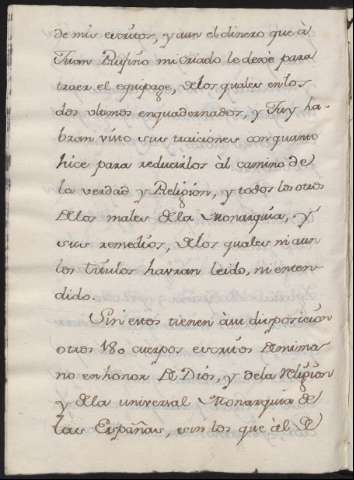 de mis escritos, y aun el dinero que à
Juan Rufino mi criado le dexe para
traer el equipage, de los quales en los
dos ultimos enquadernados, y ha-
bran visto sus traiciones con quanto
hice para reducirlos àl camino de
la verdad y Religion, y todos los otros
de los males de la Monarquia, y
sus remedios, de los quales ni aun
los titulos havran leido, ni enten-
dido.
Sin estos tienen à su disposicion
otros 180 cuerpos escritos de mi ma
no en honor de Dios, y de la Religion
y de la universal Monarquia de
las Españas, sin los que àl